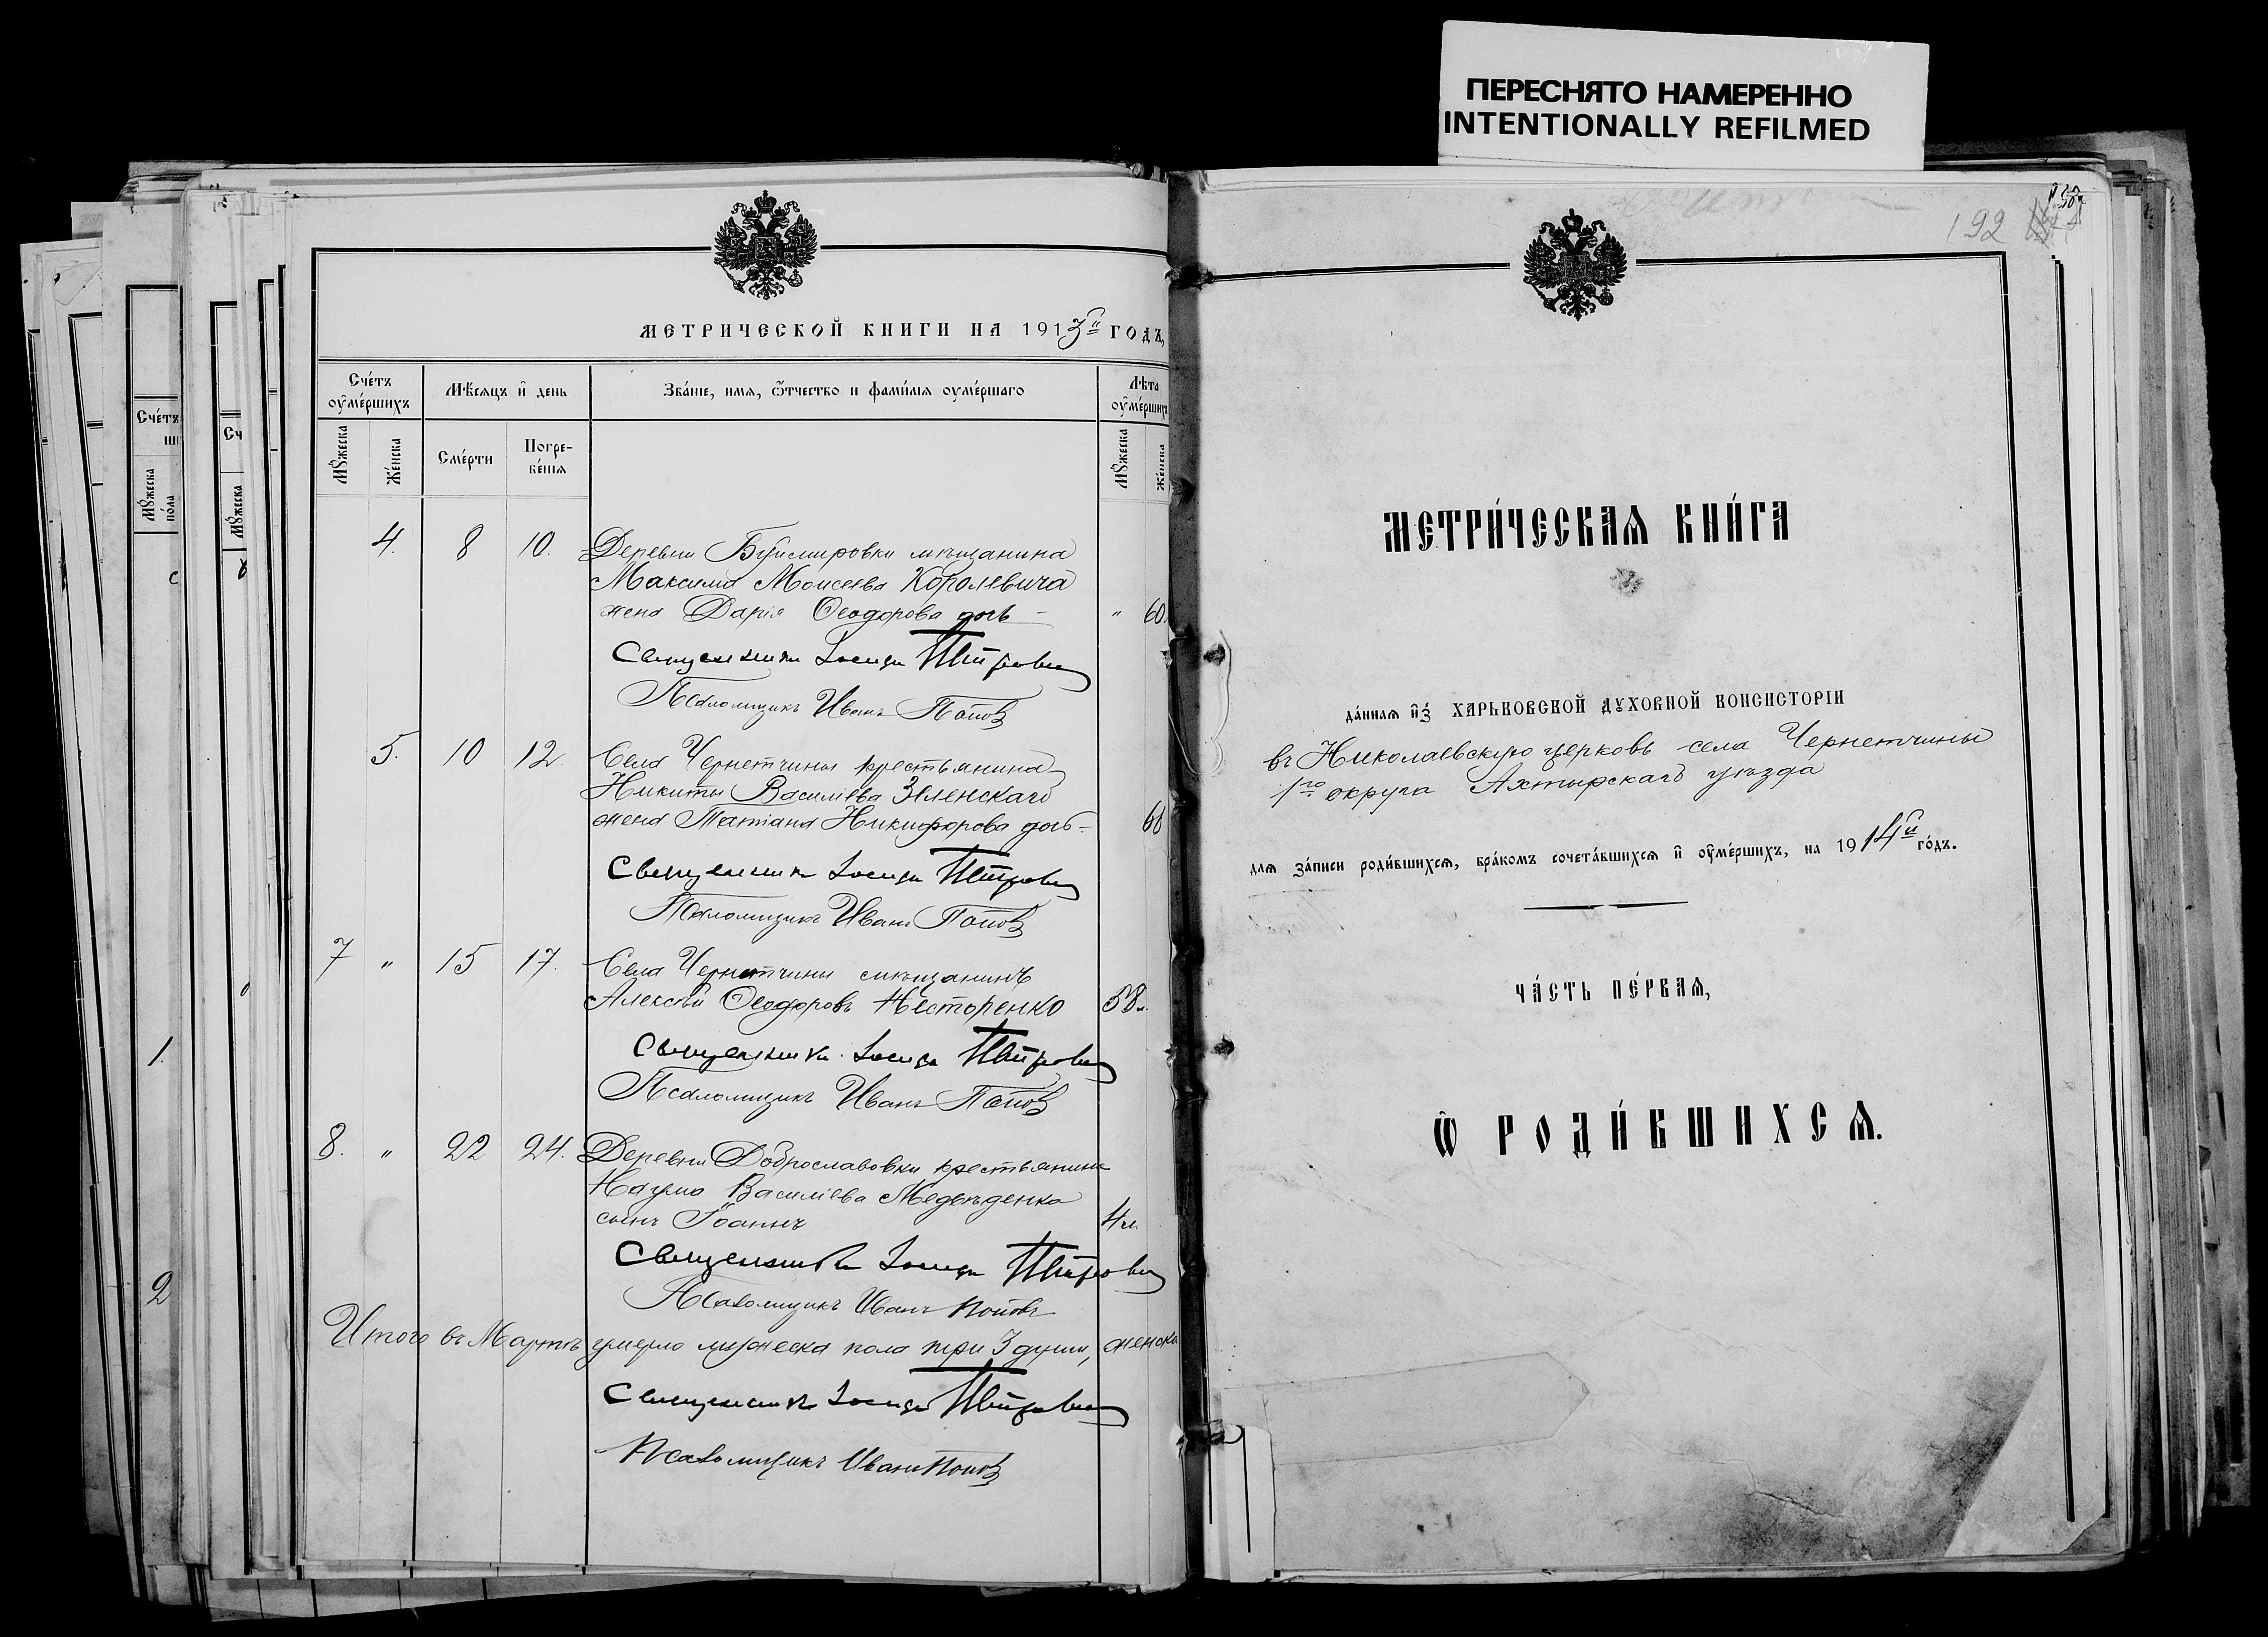 ПЕРЕСНЯТО НАМЕРЕННО
INTENTIONALLY REFILMED
МЕТРИЧЕСКОЙ КНИГИ НА 1913й ГОДЪ,
Сче́тъ оуме́ршихъ
Мѣсяцъ и день
Зва́нiе, имя, ѿтчество и фами́лiя оуме́ршаго
Лѣта оуме́ршихъ
Мꙋжеска
Же́нска
Сме́рти
Погребе́нiя
Мꙋжеска
Же́нска
4. 8 10. Деревни Буймировки мѣщанина
Максима Моисеева Королевича
жена Дарія Ѳеодорова дочь – " 60.
Священникъ Іосифъ Петровъ
Псаломщикъ Иванъ Поповъ
5. 10 12. Села Чернетчины крестьянина
Никиты Василіева Зеленскаго
жена Татіана Никифорова дочь – 68
Священникъ Іосифъ Петровъ
Псаломщикъ Иванъ Поповъ
7 " 15 17. Села Чернетчины мѣщанинъ
Алексѣй Ѳеодоровъ Несторенко 58 л.
Священникъ Іосифъ Петровъ
Псаломщикъ Иванъ Поповъ
8. " 22 24. Деревни Доброславовки крестьянина
Наума Василіева Медвѣденка
сынъ Іоаннъ 4 л.
Священникъ Іосифъ Петровъ
Псаломщикъ Иванъ Поповъ
Итого въ Мартѣ умерло мужеска пола три 3 души, женска
Священникъ Іосифъ Петровъ
Псаломщикъ Иванъ Поповъ
Сче́тъ
Мꙋжеска по́ла
1.
2
Сч
Мꙋжеска
192
МЕТРИ́ЧЕСКАѦ КНИ́ГА
да́нная из̾ ХАРЬКОВСКОЙ ДꙊХОВНОЙ КОНСИСТОРІИ
въ Николаевскую церковь села Чернетчины
1го округа Ахтырскаго уѣзда
для за́писи роди́вшихся, бра́комъ сочета́вшихся и оуме́ршихъ, на 1914й го́дъ.
ЧА́СТЬ ПЕ́РВАѦ,
Ѡ РОДИ́ВШИХСѦ.